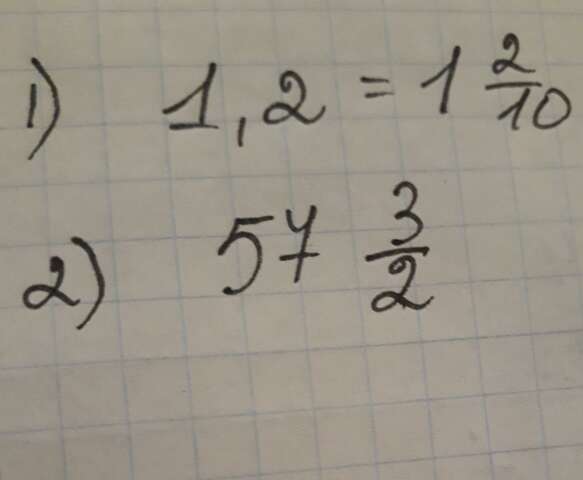 1) 1,2 = 1 2/10
2) 57 3/2